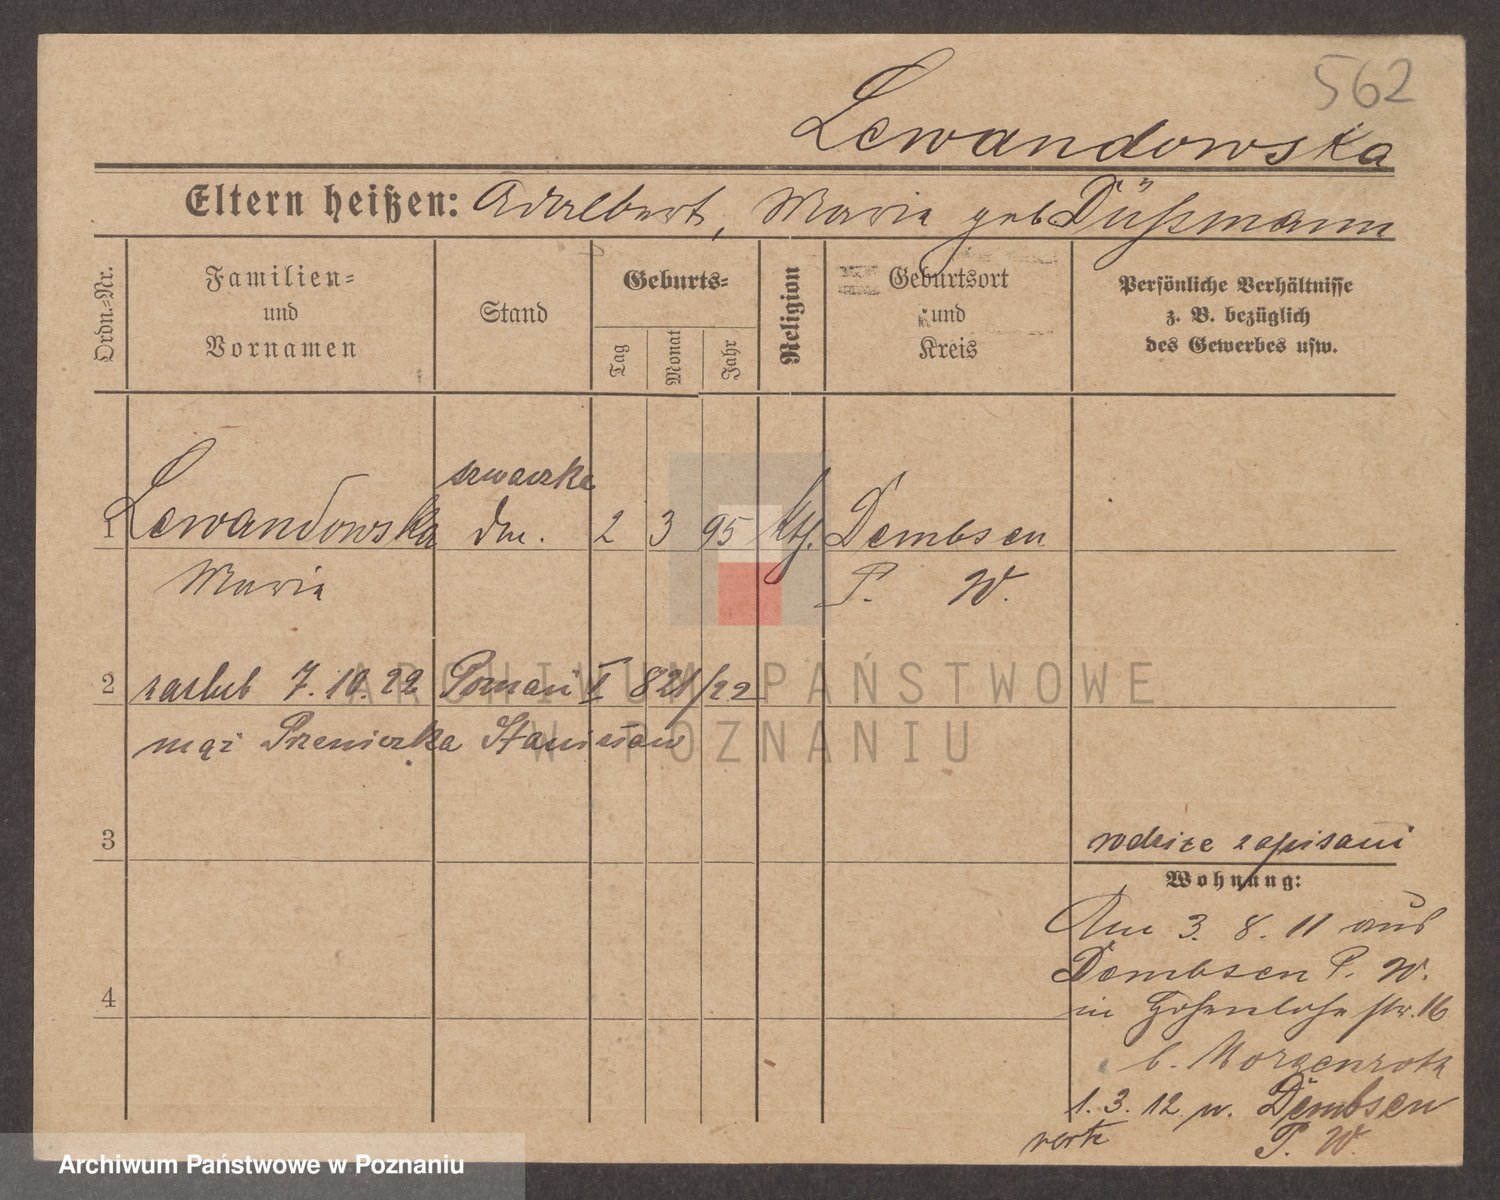 562
Lewandowska
Eltern heißen: Adalbert, Maria geb Düßmann
Ordn.-Nr.
Familien-
und
Vornamen
Stand
Geburts-
Tag
Monat
Jahr
Religion
Geburtsort
und
Kreis
Persönliche Verhältnisse
z. B. bezüglich
des Gewerbes usw.
szwaczka
1 Lewandowska dm. 2 3 95 kth. Dembsen
Maria P. W.
2 zaślub 7.10.22 Poznań I 821/22
mąż Pszeniczka Stanisław
3
rodzice zapisani
Wohnung:
Am 3. 8. 11 aus
Dembsen P. W.
4
in Hohenlohe str. 16
b. Morgenroth
1. 3. 12 n. Dembsen
P. W.
ARCHIWUM PAŃSTWOWE
W POZNANIU
Archiwum Państwowe w Poznaniu